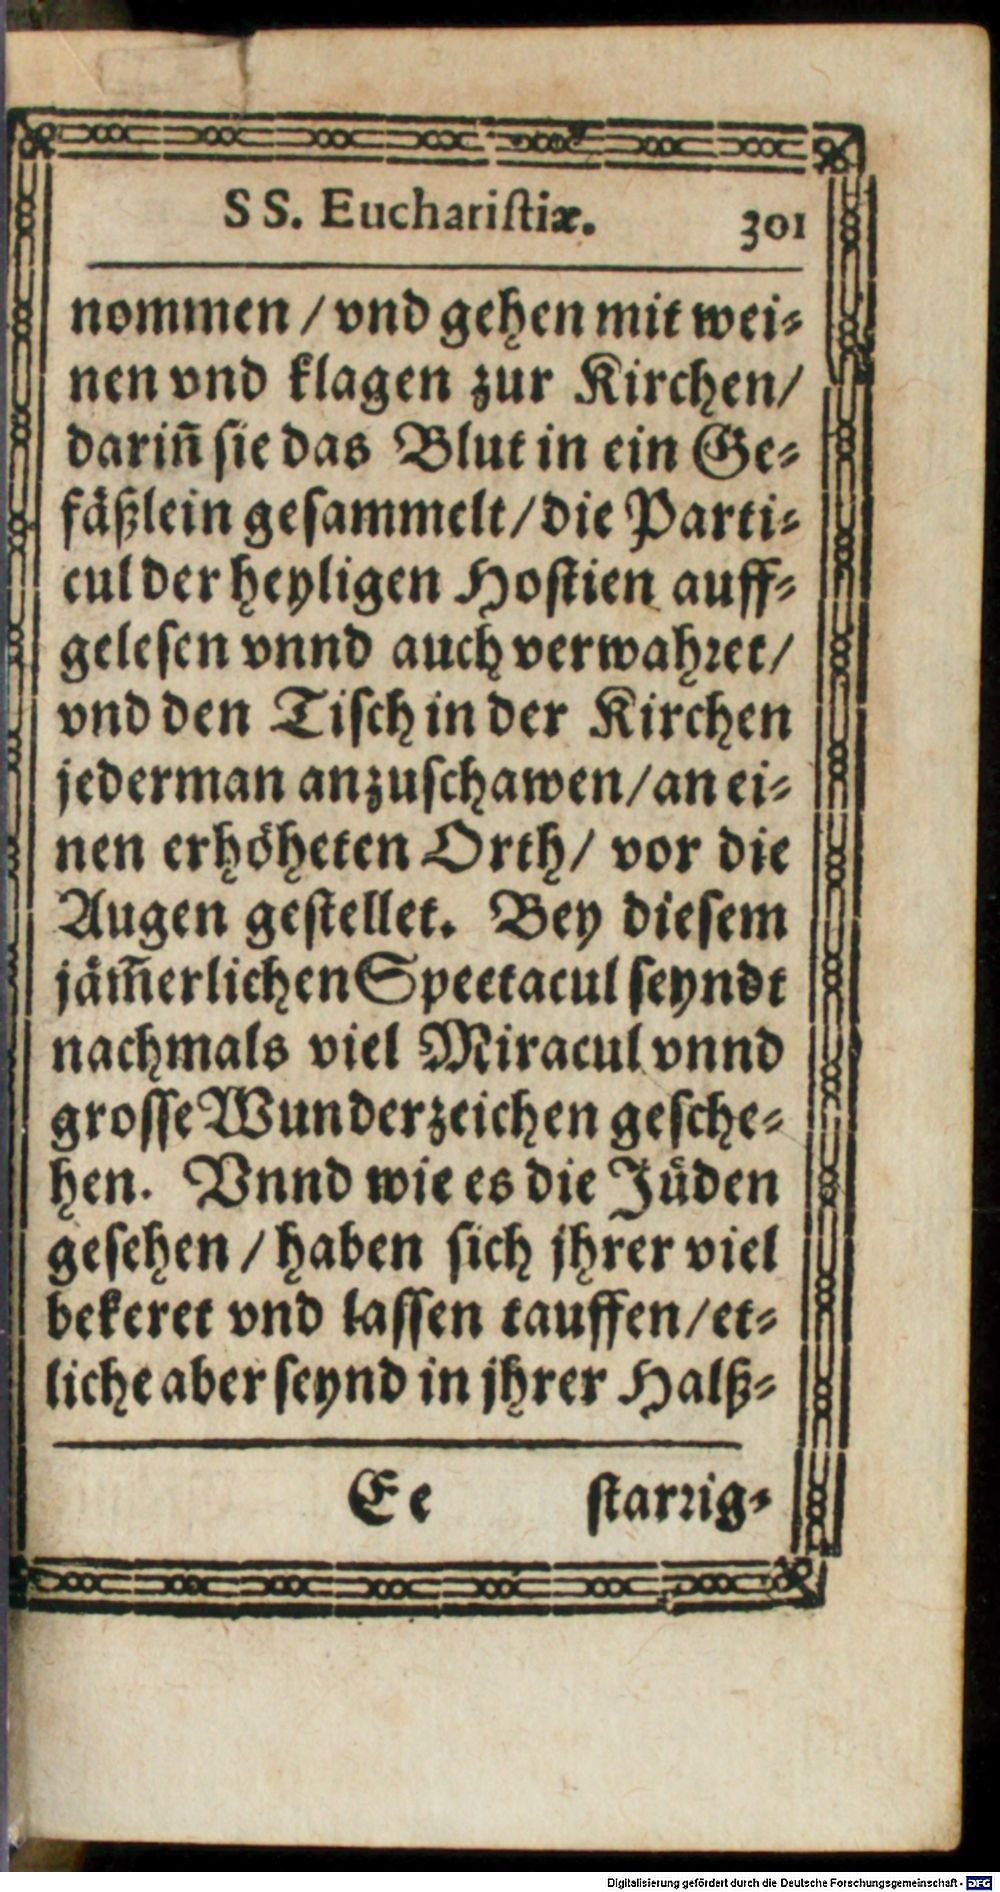 SS. Euchariſtiæ. 301
nommen / vnd gehen mit wei-
nen vnd klagen zur Kirchen /
dariñ ſie das Blut in ein Ge-
fäßlein geſammelt / die Parti-
cul der heyligen Hoſtien auff-
geleſen vnnd auch verwahꝛet /
vnd den Tiſch in der Kirchen
jederman anzuſchawen / an ei-
nen erhöheten Orth / vor die
Augen geſtellet. Bey dieſem
jäm̃erlichen Spectacul ſeyndt
nachmals viel Miracul vnnd
groſſe Wunderzeichen geſche-
hen. Vnnd wie es die Jüden
geſehen / haben ſich jhrer viel
bekeret vnd laſſen tauffen / et-
liche aber ſeynd in jhrer Halß-
Ee ſtarꝛig-
Digitalisierung gefördert durch die Deutsche Forschungsgemeinschaft - DFG